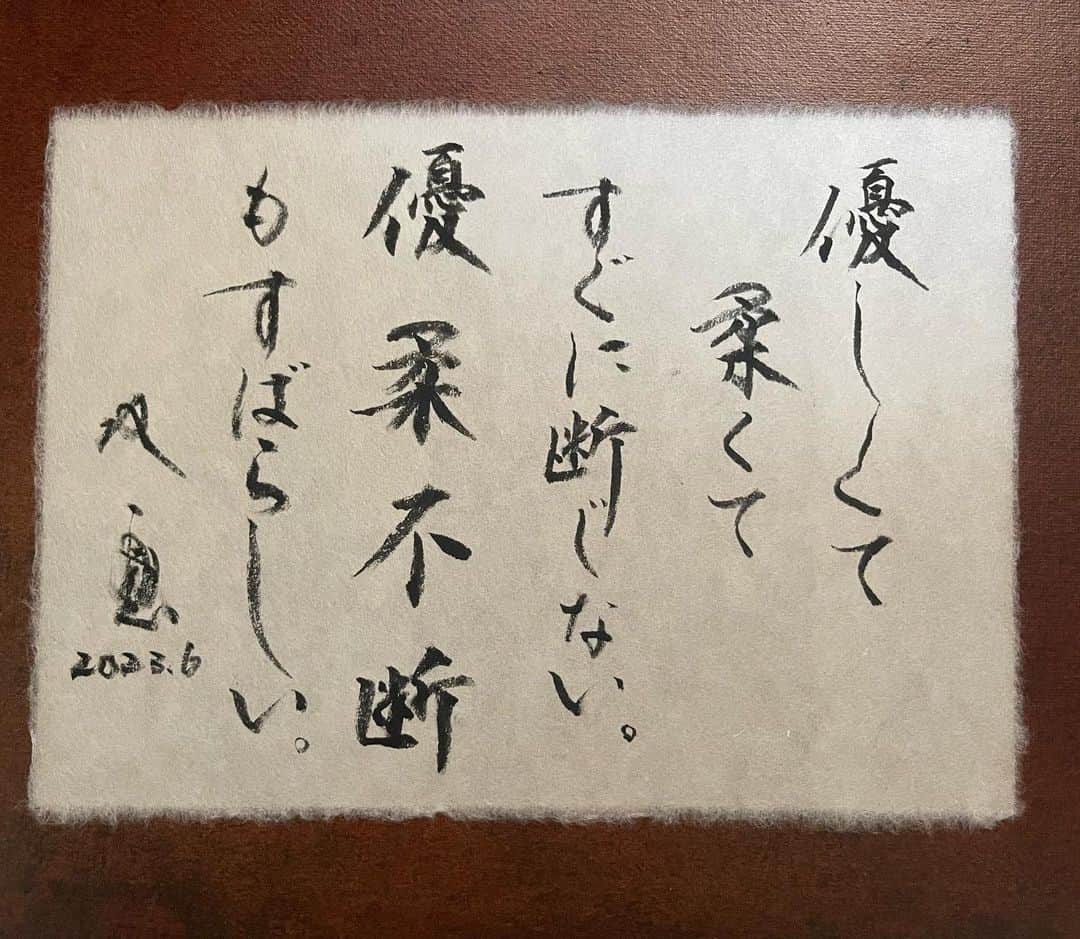 優しくて
柔くて
すぐに断じない。
優柔不断
もすばらしい。
2023.6